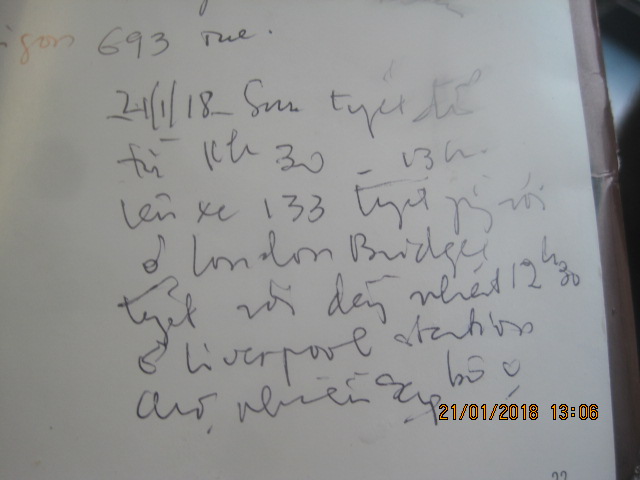 693 rue.
21/1/18 - Sun tuyết
từ 11h 30 - 13h.
lên xe 133 tuyết rơi
ở London Bridge
tuyết rơi dày nhất 12h30
ở Liverpool station
chợ, nhiều bỏ
21/01/2018 13:06